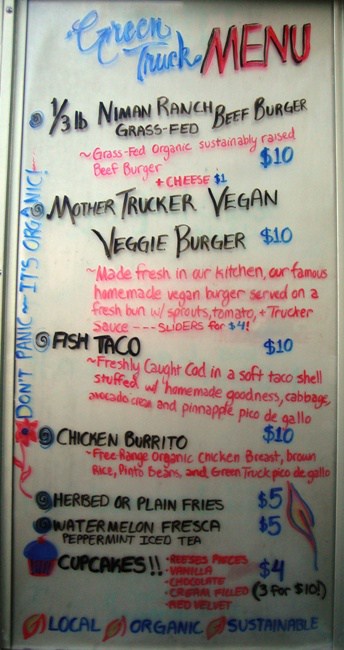 Green Truck MENU
1/3 lb NIMAN RANCH BEEF BURGER
GRASS-FED
~Grass-Fed Organic sustainably raised
Beef Burger $10
+ CHEESE $1
MOTHER TRUCKER VEGAN
VEGGIE BURGER $10
~Made fresh in our kitchen, our famous
homemade vegan burger served on a
fresh bun w/ sprouts, tomato, + Trucker
Sauce --- SLIDERS for $4!
FISH TACO $10
~Freshly Caught Cod in a soft taco shell
stuffed w/ homemade goodness, cabbage,
avocado cream and pinnapple pico de gallo
CHICKEN BURRITO $10
~Free Range Organic Chicken Breast, brown
Rice, Pinto Beans, and Green Truck pico de gallo
HERBED OR PLAIN FRIES $5
WATERMELON FRESCA $5
PEPPERMINT ICED TEA
CUPCAKES!! $4
(3 for $10!)
•REESES PIECES
•VANILLA
•CHOCOLATE
•CREAM FILLED
•RED VELVET
LOCAL ORGANIC SUSTAINABLE
DON'T PANIC ~ IT'S ORGANIC!